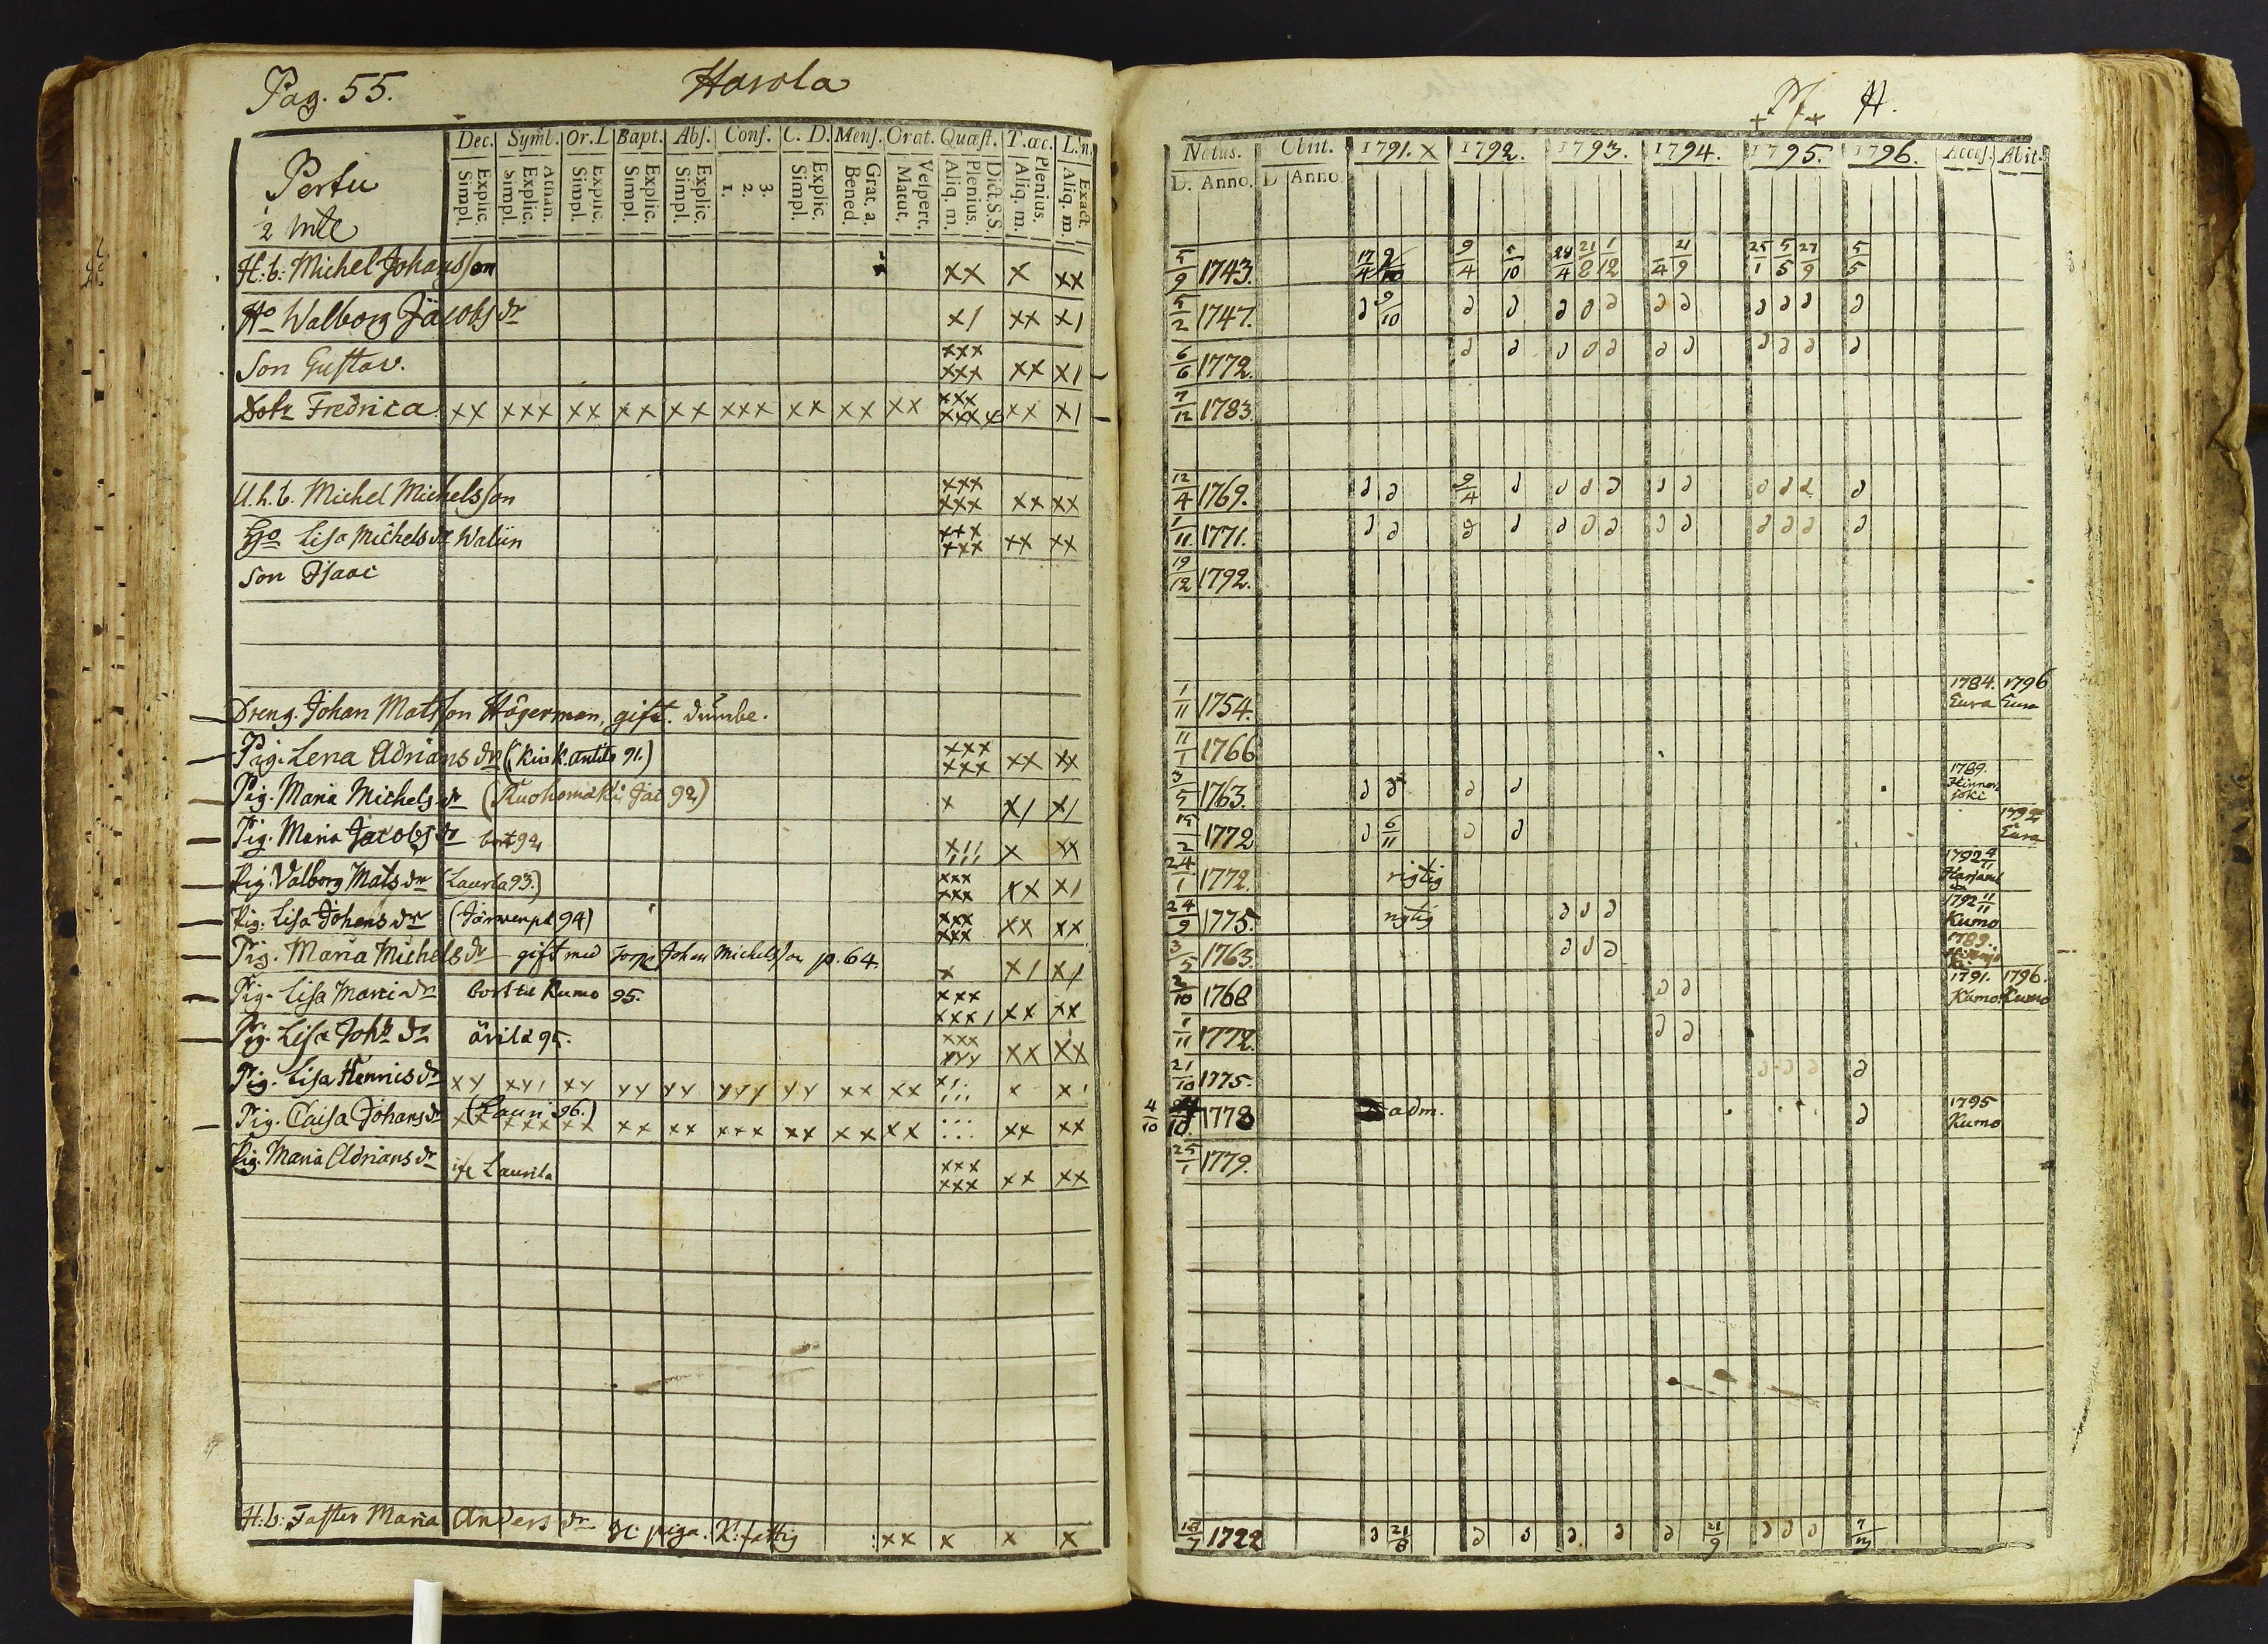 Pag. 55. Harola
Dec. Symb. Or. L Bapt. Abs. Conf. C. D. Mens. Orat. Quæst. T. œc. L. in.
Explic. Simpl. Athan. Explic. Simpl. Explic. Simpl. Explic. Simpl. Explic. Simpl. 3. 2. 1. Explic. Simpl. Grat. a. Bened. Vespert. Matut. Dict. S.S. Plenius. Aliq. m. Plenius. Aliq. m. Exact. Aliq. m.
Pertu
2 mtl
H: b: Michel Johansson xx x xx
Ho Walborg Jacobs dr x/ xx x/
Son Gustav. xxx xxx xx x/
Dotr Fredrica xx xxx xx xx xx xxx xx xx xx xxx xxxx xx x/
U. h. b. Michel Michelsson xxx xxx xx xx
Ho Lisa Michels dr Walün xxx xxx xx xx
Son Isaac
Dreng. Johan Matsson Hägerman, gift. dumbe.
Pig. Lena Adrians dr (Kiuk. antti 91.) xxx xxx xx xx
Pig. Maria Michels dr (Kuohomäki Jac 92) x x/ x/
Pig. Maria Jacobs dr bort 92 x// /// x xx
Pig. Valborg Mats dr (Laurla 93.) xxx xxx xx x/
Pig. Lisa Johans dr (Järvenpä 94) xxx xxx xx xx
Pig. Maria Michels dr gift med torp. Johan Michelsson p. 64. x x/ x/
Pig. Lisa Marci dr bort til Kumo 95. xxx xxx/ xx xx
Pig. Lisa Joh. dr ävilä 95. xxx xxx xx xx
Pig. Lisa Hennis dr xx xx/ xx xx xx xxx xx xx xx x/. /// x x/
Pig. Caisa Johans dr (Lauri 96.) xx xxx xx xx xx xxx xx xx xx xx xx
Pig. Maria Adrians dr ifr Laurila xxx xxx xx xx
H: b: Faster Maria Anders dr g: piga. K: fattig xx x x x
H.
Natus. Obiit. 1791. x 1792. 1793. 1794. 1795. 1796. Acces. Abit.
D. Anno. D Anno.
5/9 1743. 17/4 9/10 9/4 5/10 24/4 21/8 1/12 /4 21/9 25/1 5/5 27/9 5/5
5/2 1747. d 9/10 d d d d d d d d d d d
6/6 1772. d d d d d d d d d d d
7/12 1783.
12/4 1769. d d 9/4 d d d d d d d d d d
1/11. 1771. d d d d d d d d d d d d d
19/12 1792.
1/11 1754. 1784. Eura 1796 Eura
11/1 1766
3/5 1763. d d d d 1789. Hinnerjoki
15/2 1772 d 6/11 d d 1792 Eura
24/1 1772. rigtig 1792 4/11
24/9 1775. rigtig d d d 1792 11/11 Kumo
3/5 1763. d d d 1789.
2/10 1768 d d 1791. Kumo. 1796. Kumo
1/11 1772. d d
21/10 1775. d d d d
4/10 1778 adm. d 1795 Kumo
25/1 1779.
18/7 1722 d 21/8 d d d d d 21/9 d d d